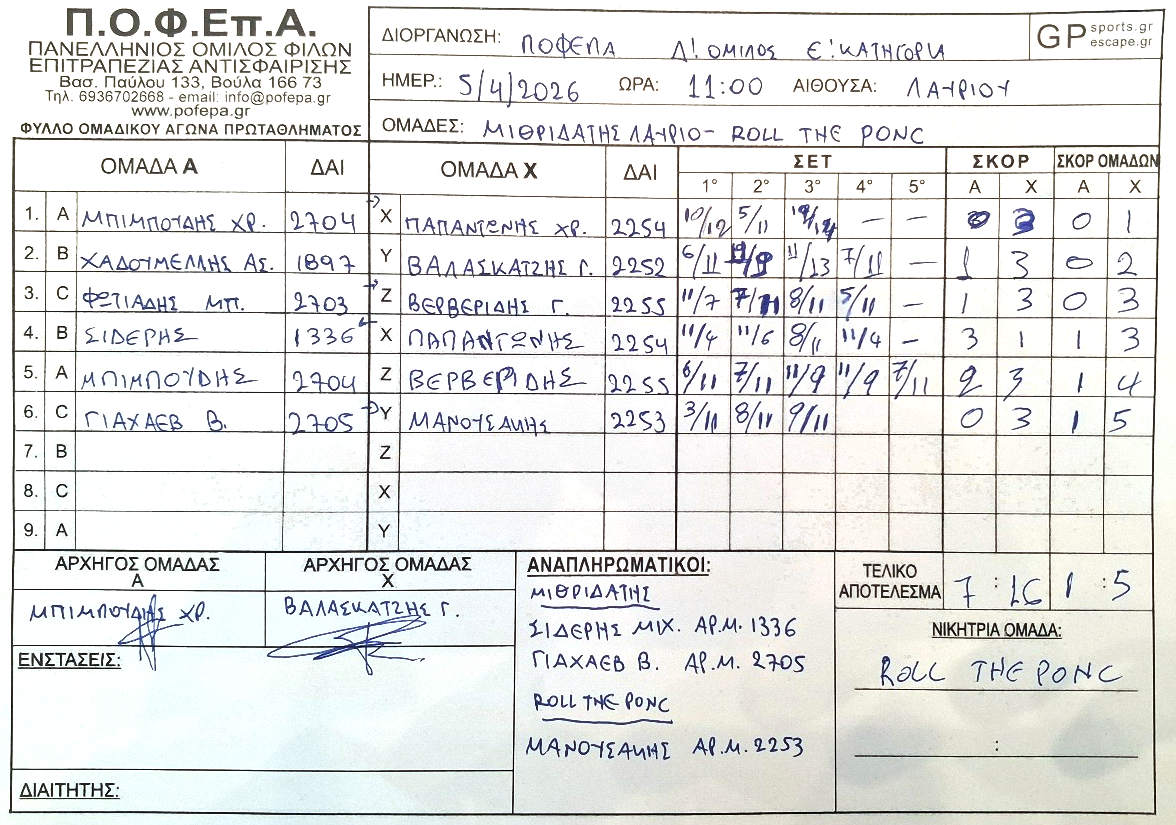 Π.Ο.Φ.Επ.Α.
ΠΑΝΕΛΛΗΝΙΟΣ ΟΜΙΛΟΣ ΦΙΛΩΝ
ΕΠΙΤΡΑΠΕΖΙΑΣ ΑΝΤΙΣΦΑΙΡΙΣΗΣ
Βασ. Παύλου 133, Βούλα 166 73
Τηλ. 6936702668 - email: info@pofepa.gr
www.pofepa.gr
ΦΥΛΛΟ ΟΜΑΔΙΚΟΥ ΑΓΩΝΑ ΠΡΩΤΑΘΛΗΜΑΤΟΣ
ΔΙΟΡΓΑΝΩΣΗ: ΠΟΦΕΠΑ Δ! ΟΜΙΛΟΣ Ε! ΚΑΤΗΓΟΡΙΑ
GP sports.gr
escape.gr
ΗΜΕΡ.: 5/4/2026 ΩΡΑ: 11:00 ΑΙΘΟΥΣΑ: ΛΑΥΡΙΟΥ
ΟΜΑΔΕΣ: ΜΙΘΡΙΔΑΤΗΣ ΛΑΥΡΙΟ - ROLL THE PONC
ΟΜΑΔΑ Α ΔΑΙ ΟΜΑΔΑ Χ ΔΑΙ ΣΕΤ ΣΚΟΡ ΣΚΟΡ ΟΜΑΔΩΝ
1° 2° 3° 4° 5° Α Χ Α Χ
1. A ΜΠΙΜΠΟΥΔΗΣ ΧΡ. 2704 X ΠΑΠΑΝΤΩΝΗΣ ΧΡ. 2254 10/12 5/11 — — 0 3 0 1
2. B ΧΑΔΟΥΜΕΛΛΗΣ ΑΣ. 1897 Y ΒΑΛΑΣΚΑΤΖΗΣ Γ. 2252 6/11 11/9 11/13 7/11 — 1 3 0 2
3. C ΦΩΤΙΑΔΗΣ ΜΠ. 2703 Z ΒΕΡΒΕΡΙΔΗΣ Γ. 2255 11/7 7/11 8/11 5/11 — 1 3 0 3
4. B ΣΙΔΕΡΗΣ 1336 X ΠΑΠΑΝΤΩΝΗΣ 2254 11/4 11/6 8/11 11/4 — 3 1 1 3
5. A ΜΠΙΜΠΟΥΔΗΣ 2704 Z ΒΕΡΒΕΡΙΔΗΣ 2255 6/11 7/11 11/9 11/9 7/11 2 3 1 4
6. C ΓΙΑΧΑΕΒ Β. 2705 Y ΜΑΝΟΥΣΑΚΗΣ 2253 3/11 8/11 9/11 0 3 1 5
7. B Z
8. C X
9. A Y
ΑΡΧΗΓΟΣ ΟΜΑΔΑΣ Α ΑΡΧΗΓΟΣ ΟΜΑΔΑΣ Χ
ΜΠΙΜΠΟΥΔΗΣ ΧΡ. ΒΑΛΑΣΚΑΤΖΗΣ Γ.
ΕΝΣΤΑΣΕΙΣ:
ΔΙΑΙΤΗΤΗΣ:
ΑΝΑΠΛΗΡΩΜΑΤΙΚΟΙ:
ΜΙΘΡΙΔΑΤΗΣ
ΣΙΔΕΡΗΣ ΜΙΧ. ΑΡ.Μ. 1336
ΓΙΑΧΑΕΒ Β. ΑΡ.Μ. 2705
ROLL THE PONC
ΜΑΝΟΥΣΑΚΗΣ ΑΡ.Μ. 2253
ΤΕΛΙΚΟ
ΑΠΟΤΕΛΕΣΜΑ 7 : 16 1 : 5
ΝΙΚΗΤΡΙΑ ΟΜΑΔΑ:
ROLL THE PONC
: